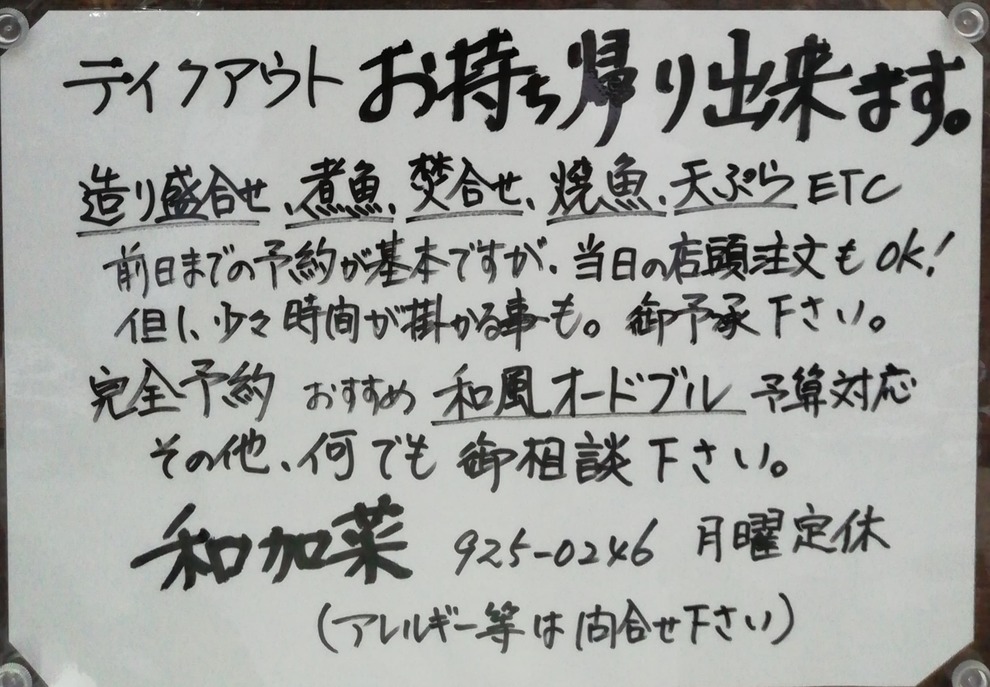 テイクアウト お持ち帰り出来ます。
造り盛合せ、煮魚、焚合せ、焼魚、天ぷら ETC
前日までの予約が基本ですが、当日の店頭注文もOK!
但し、少々時間が掛かる事も。御予承下さい。
完全予約 おすすめ 和風オードブル 予算対応
その他、何でも 御相談下さい。
和加菜 925-0246 月曜定休
(アレルギー等は問合せ下さい)